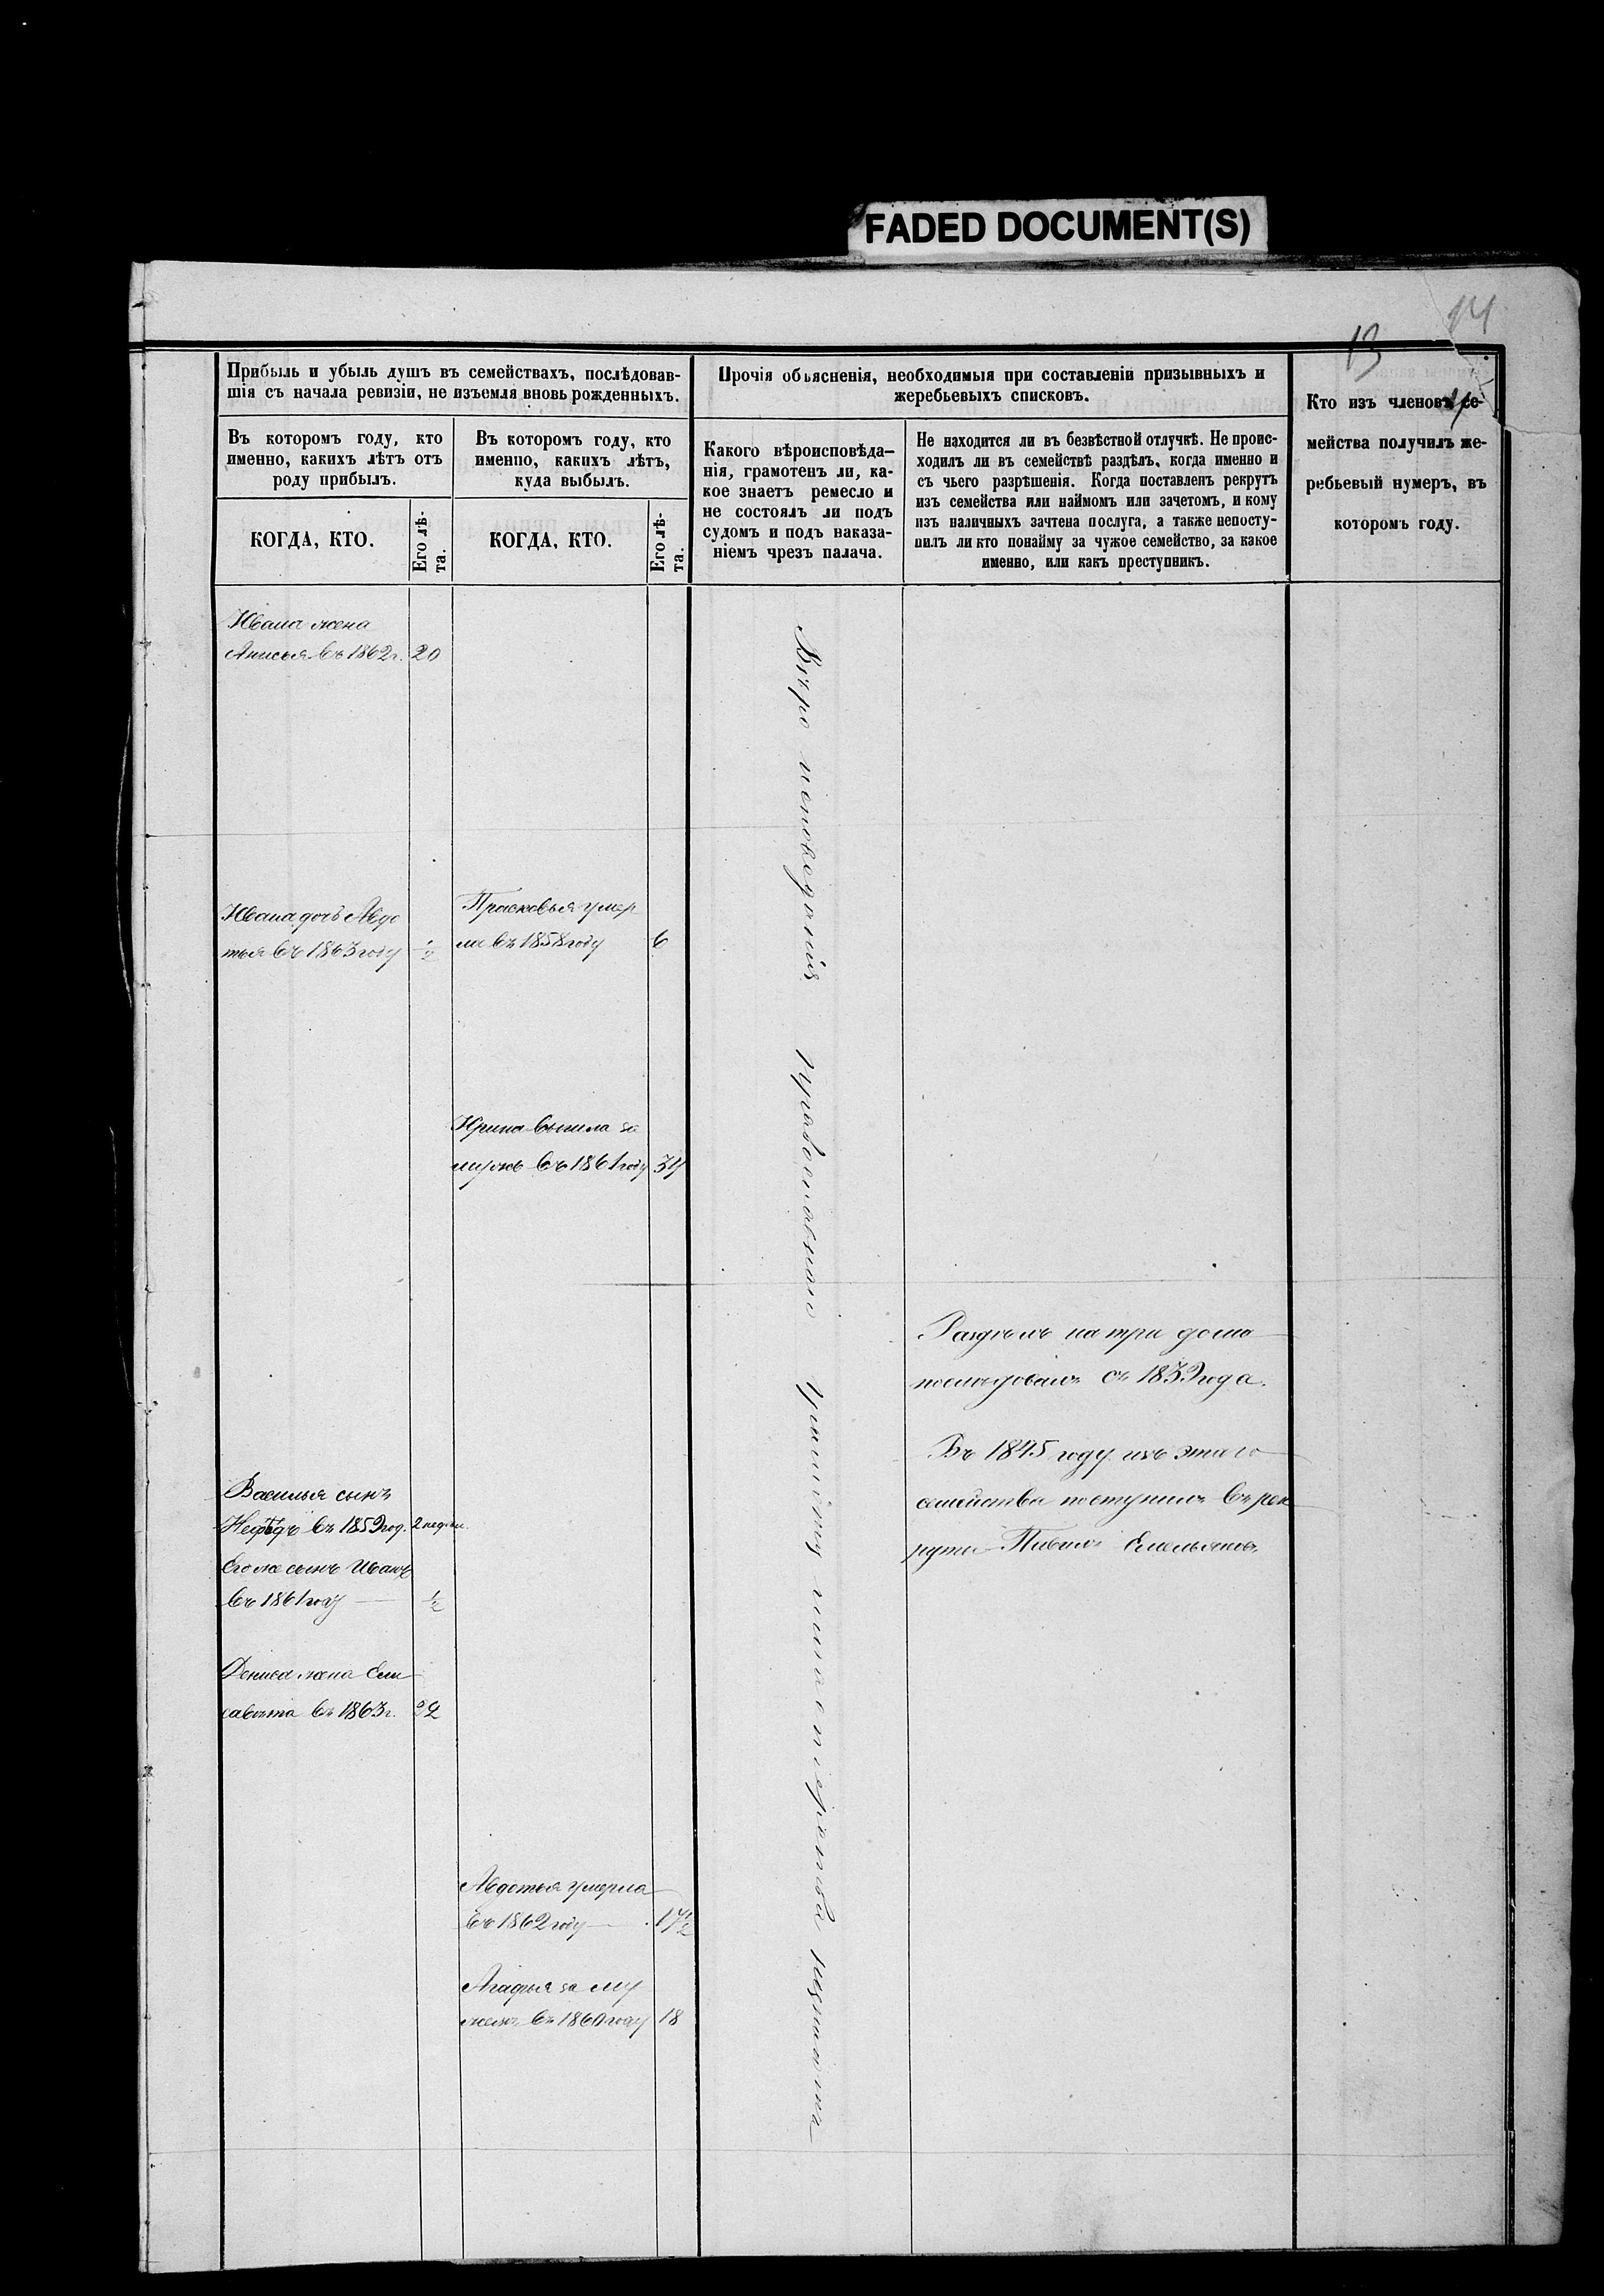 FADED DOCUMENT(S)
14
13
Прибыль и убыль душъ въ семействахъ, послѣдовав-
шія съ начала ревизіи, не изъемля вновь рожденныхъ.
Прочія объясненія, необходимыя при составленіи призывныхъ и
жеребьевыхъ списковъ.
Кто изъ членовъ се-
мейства получилъ же-
ребьевый нумеръ, въ
которомъ году.
Въ которомъ году, кто
именно, какихъ лѣтъ отъ
роду прибылъ.
Въ которомъ году, кто
именно, какихъ лѣтъ,
куда выбылъ.
Какого вѣроисповѣда-
нія, грамотенъ ли, ка-
кое знаетъ ремесло и
не состоялъ ли подъ
судомъ и подъ наказа-
ніемъ чрезъ палача.
Не находится ли въ безвѣстной отлучкѣ. Не проис-
ходилъ ли въ семействѣ раздѣлъ, когда именно и
съ чьего разрѣшенія. Когда поставленъ рекрутъ
изъ семейства или наймомъ или зачетомъ, и кому
изъ наличныхъ зачтена послуга, а также непосту-
пилъ ли кто понайму за чужое семейство, за какое
именно, или какъ преступникъ.
КОГДА, КТО.
Его лѣ-
та.
КОГДА, КТО.
Его лѣ-
та.
Ивана жена
Анисья въ 1862 г. 20
Ивана дочь Авдо
тья въ 1863 году ½
Прасковья умер
ла въ 1858 году 6
Ирина вышла за
мужъ въ 1861 году 34
Вѣро исповеданія православнаго грамотѣ
Раздѣлъ на три дома
последовалъ съ 1839 года.
Въ 1845 году изъ этаго
семейства поступилъ въ рек
руты Павелъ Емельяновъ
Василья сынъ
Нефедъ въ 1859 год. 2 недѣли.
Его же сынъ Иванъ
въ 1861 году ½
Дениса жена Ели
савета въ 1863 г. 22
Авдотья умерла
въ 1862 году 17½
Агафья за му
жемъ въ 1860 году 18